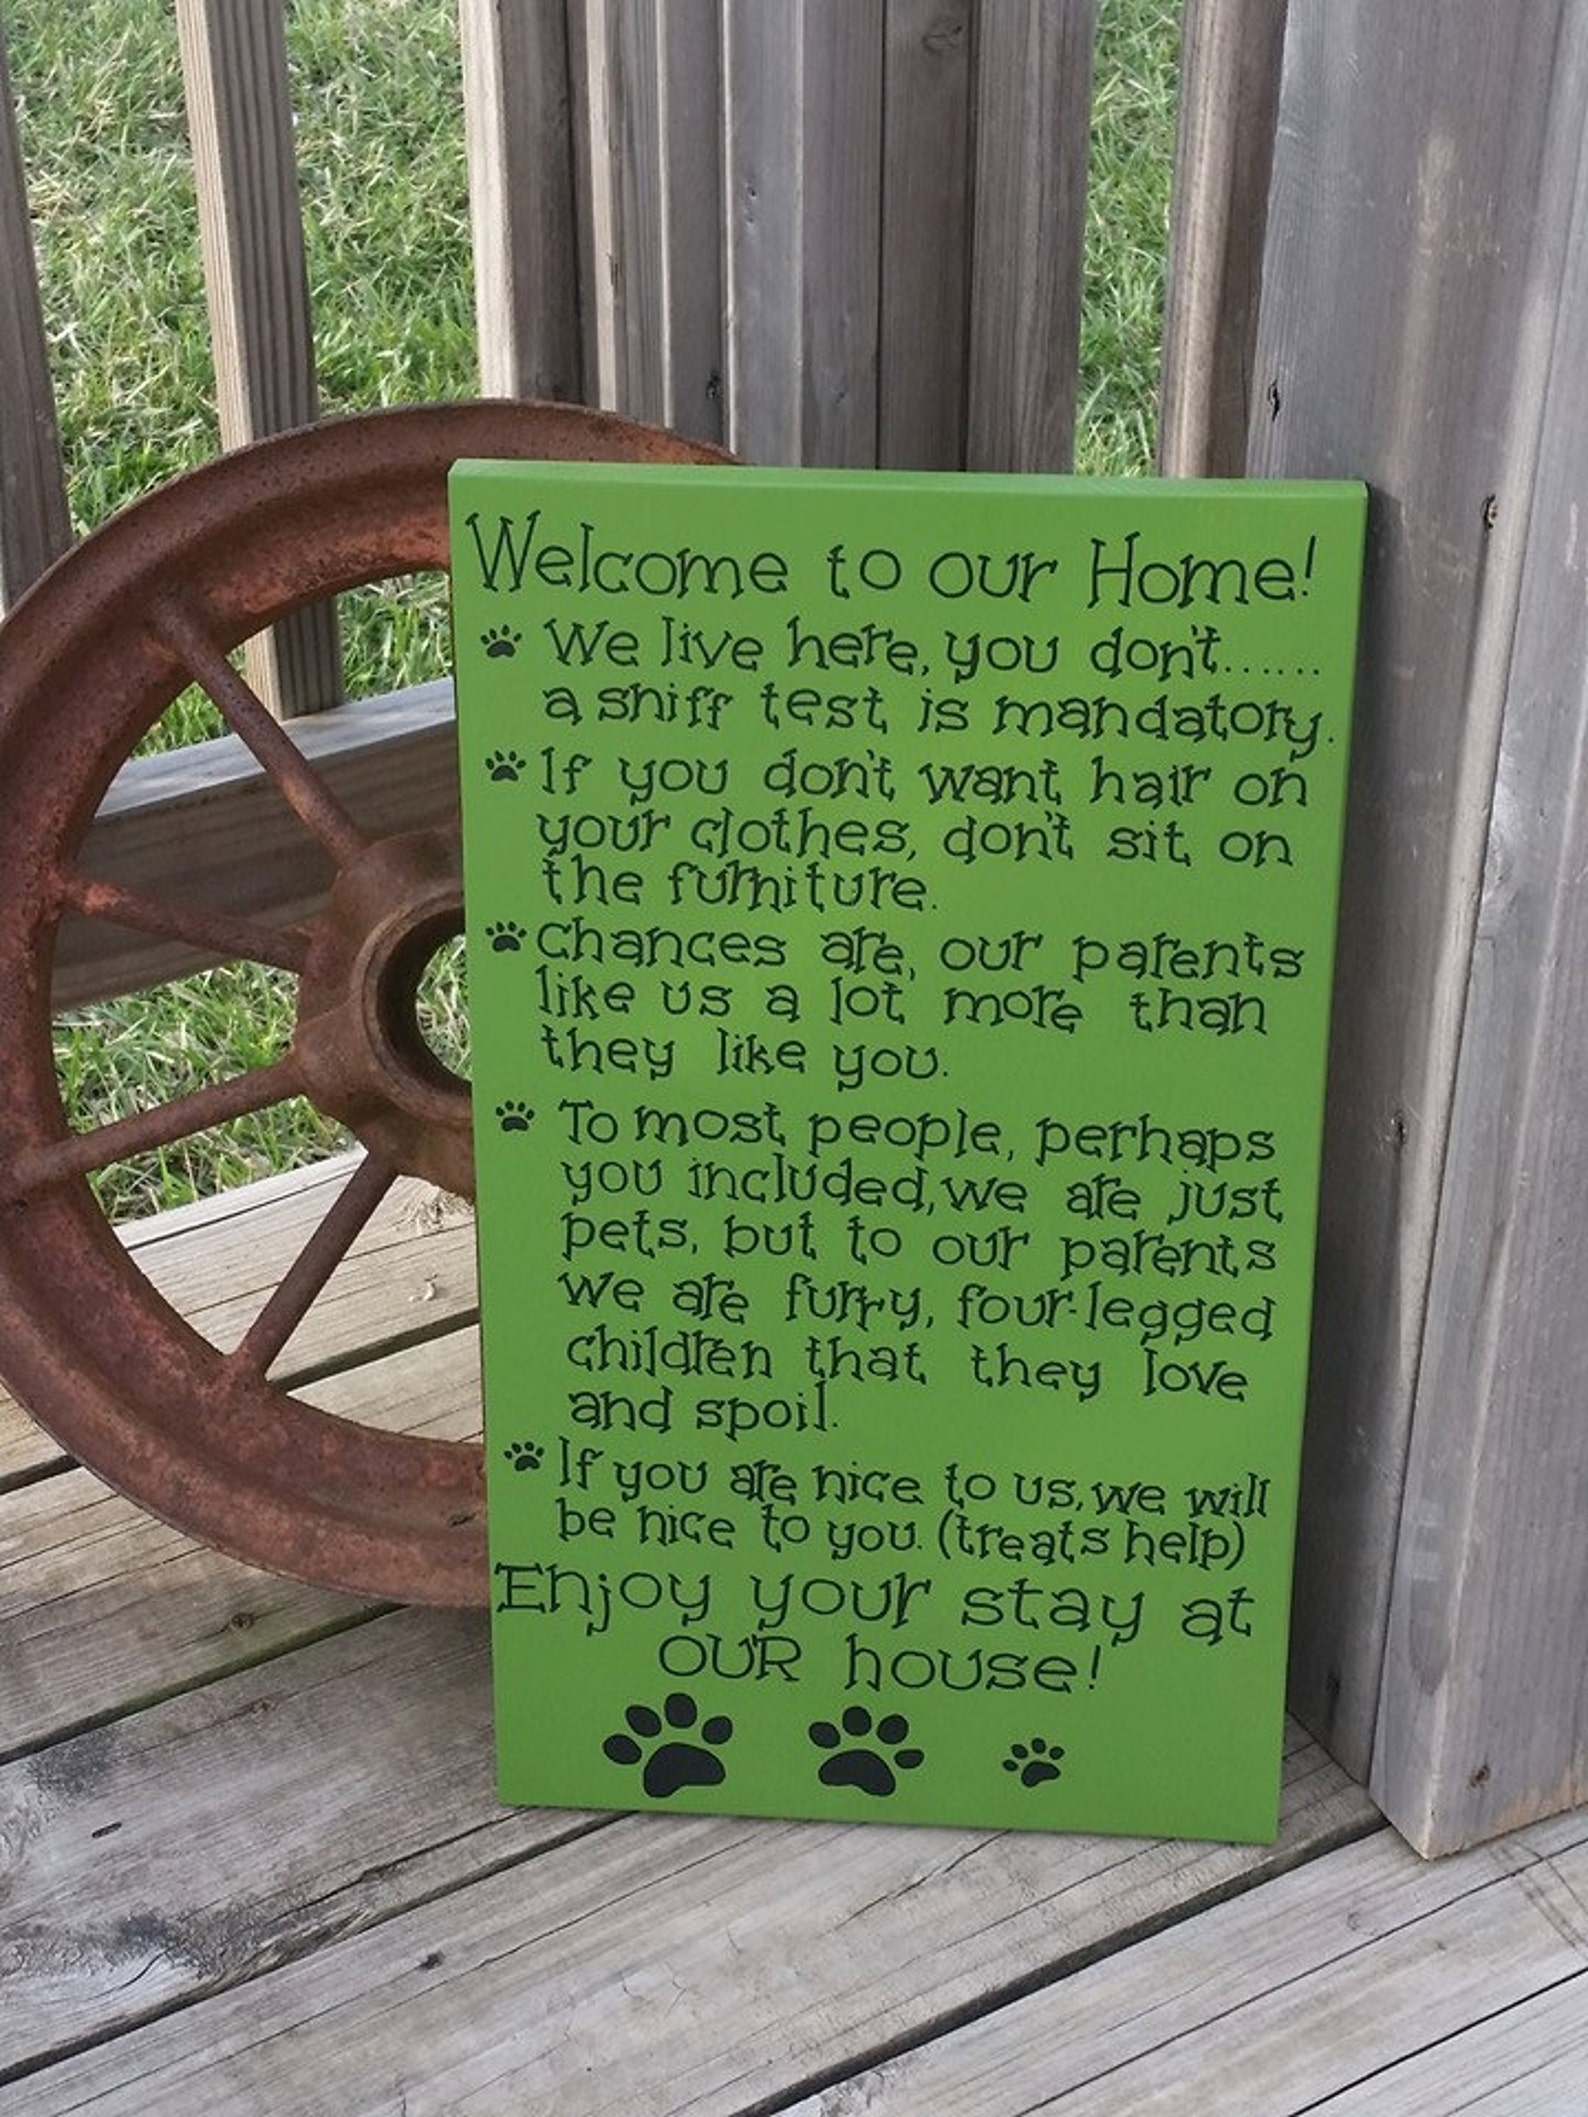 Welcome to our Home!
We live here, you don't......
a sniff test is mandatory.
If you don't want hair on
your clothes, don't sit on
the furniture.
Chances are, our parents
like us a lot more than
they like you.
To most people, perhaps
you included, we are just
pets, but to our parents
we are furry, four-legged
children that they love
and spoil.
If you are nice to us, we will
be nice to you. (treats help)
Enjoy your stay at
OUR house!